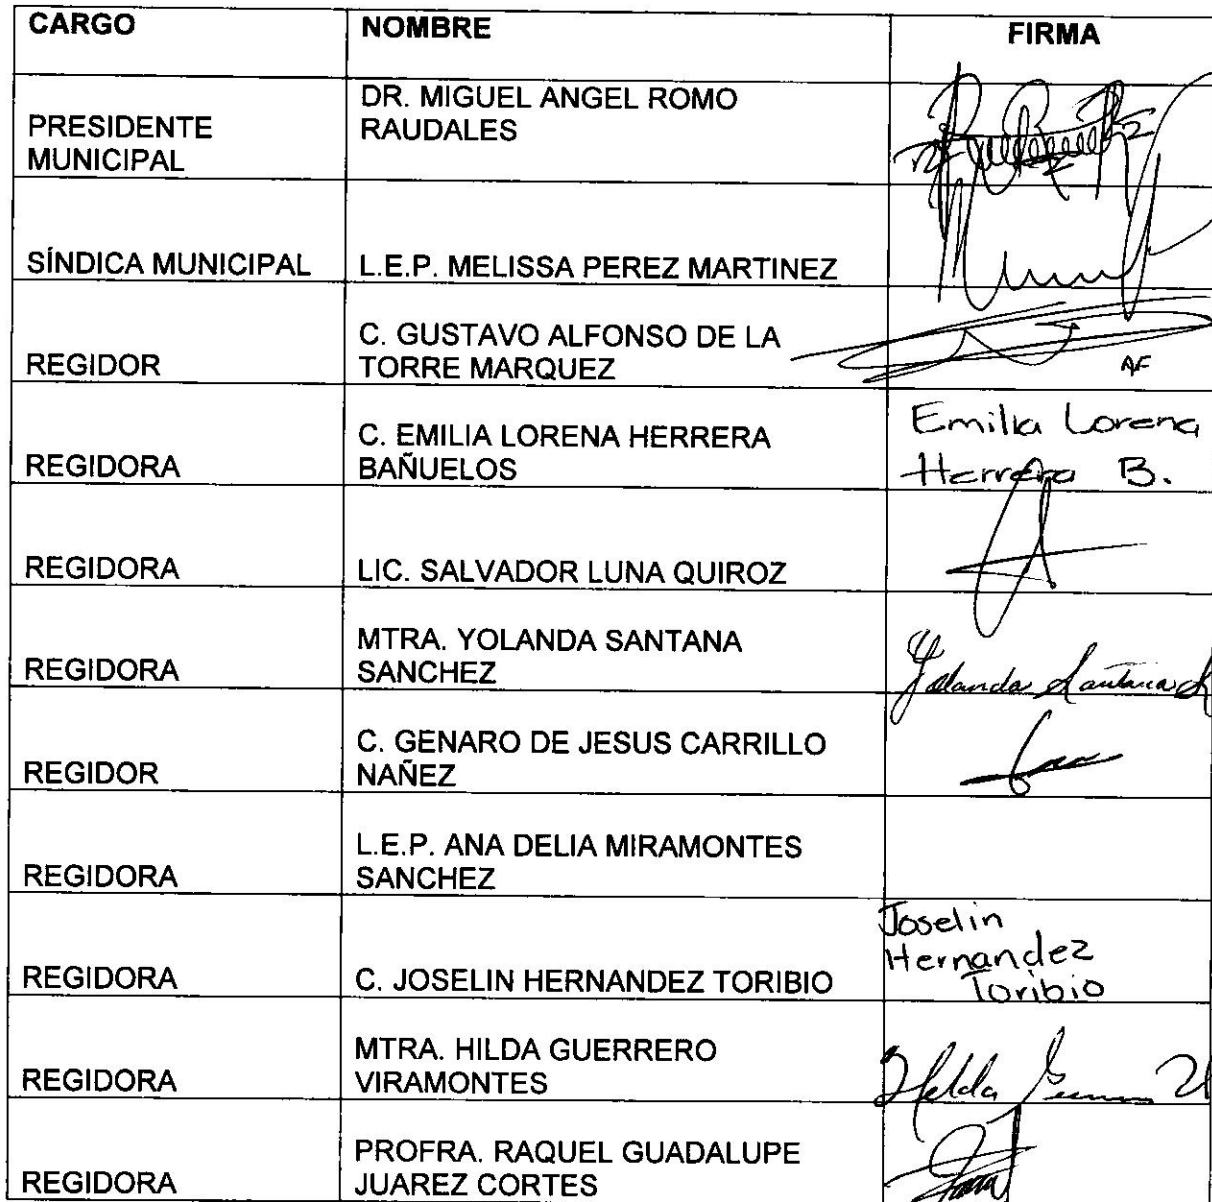 CARGO NOMBRE FIRMA
PRESIDENTE MUNICIPAL
DR. MIGUEL ANGEL ROMO
RAUDALES
SÍNDICA MUNICIPAL L.E.P. MELISSA PEREZ MARTINEZ
REGIDOR
C. GUSTAVO ALFONSO DE LA
TORRE MARQUEZ
AF
REGIDORA
C. EMILIA LORENA HERRERA
BAÑUELOS
Emilia Lorena
Herrera B.
REGIDORA LIC. SALVADOR LUNA QUIROZ
REGIDORA
MTRA. YOLANDA SANTANA
SANCHEZ
Yolanda Santana
REGIDOR
C. GENARO DE JESUS CARRILLO
NAÑEZ
REGIDORA
L.E.P. ANA DELIA MIRAMONTES
SANCHEZ
REGIDORA C. JOSELIN HERNANDEZ TORIBIO
Joselin
Hernandez
Toribio
REGIDORA
MTRA. HILDA GUERRERO
VIRAMONTES
Hilda
REGIDORA
PROFRA. RAQUEL GUADALUPE
JUAREZ CORTES